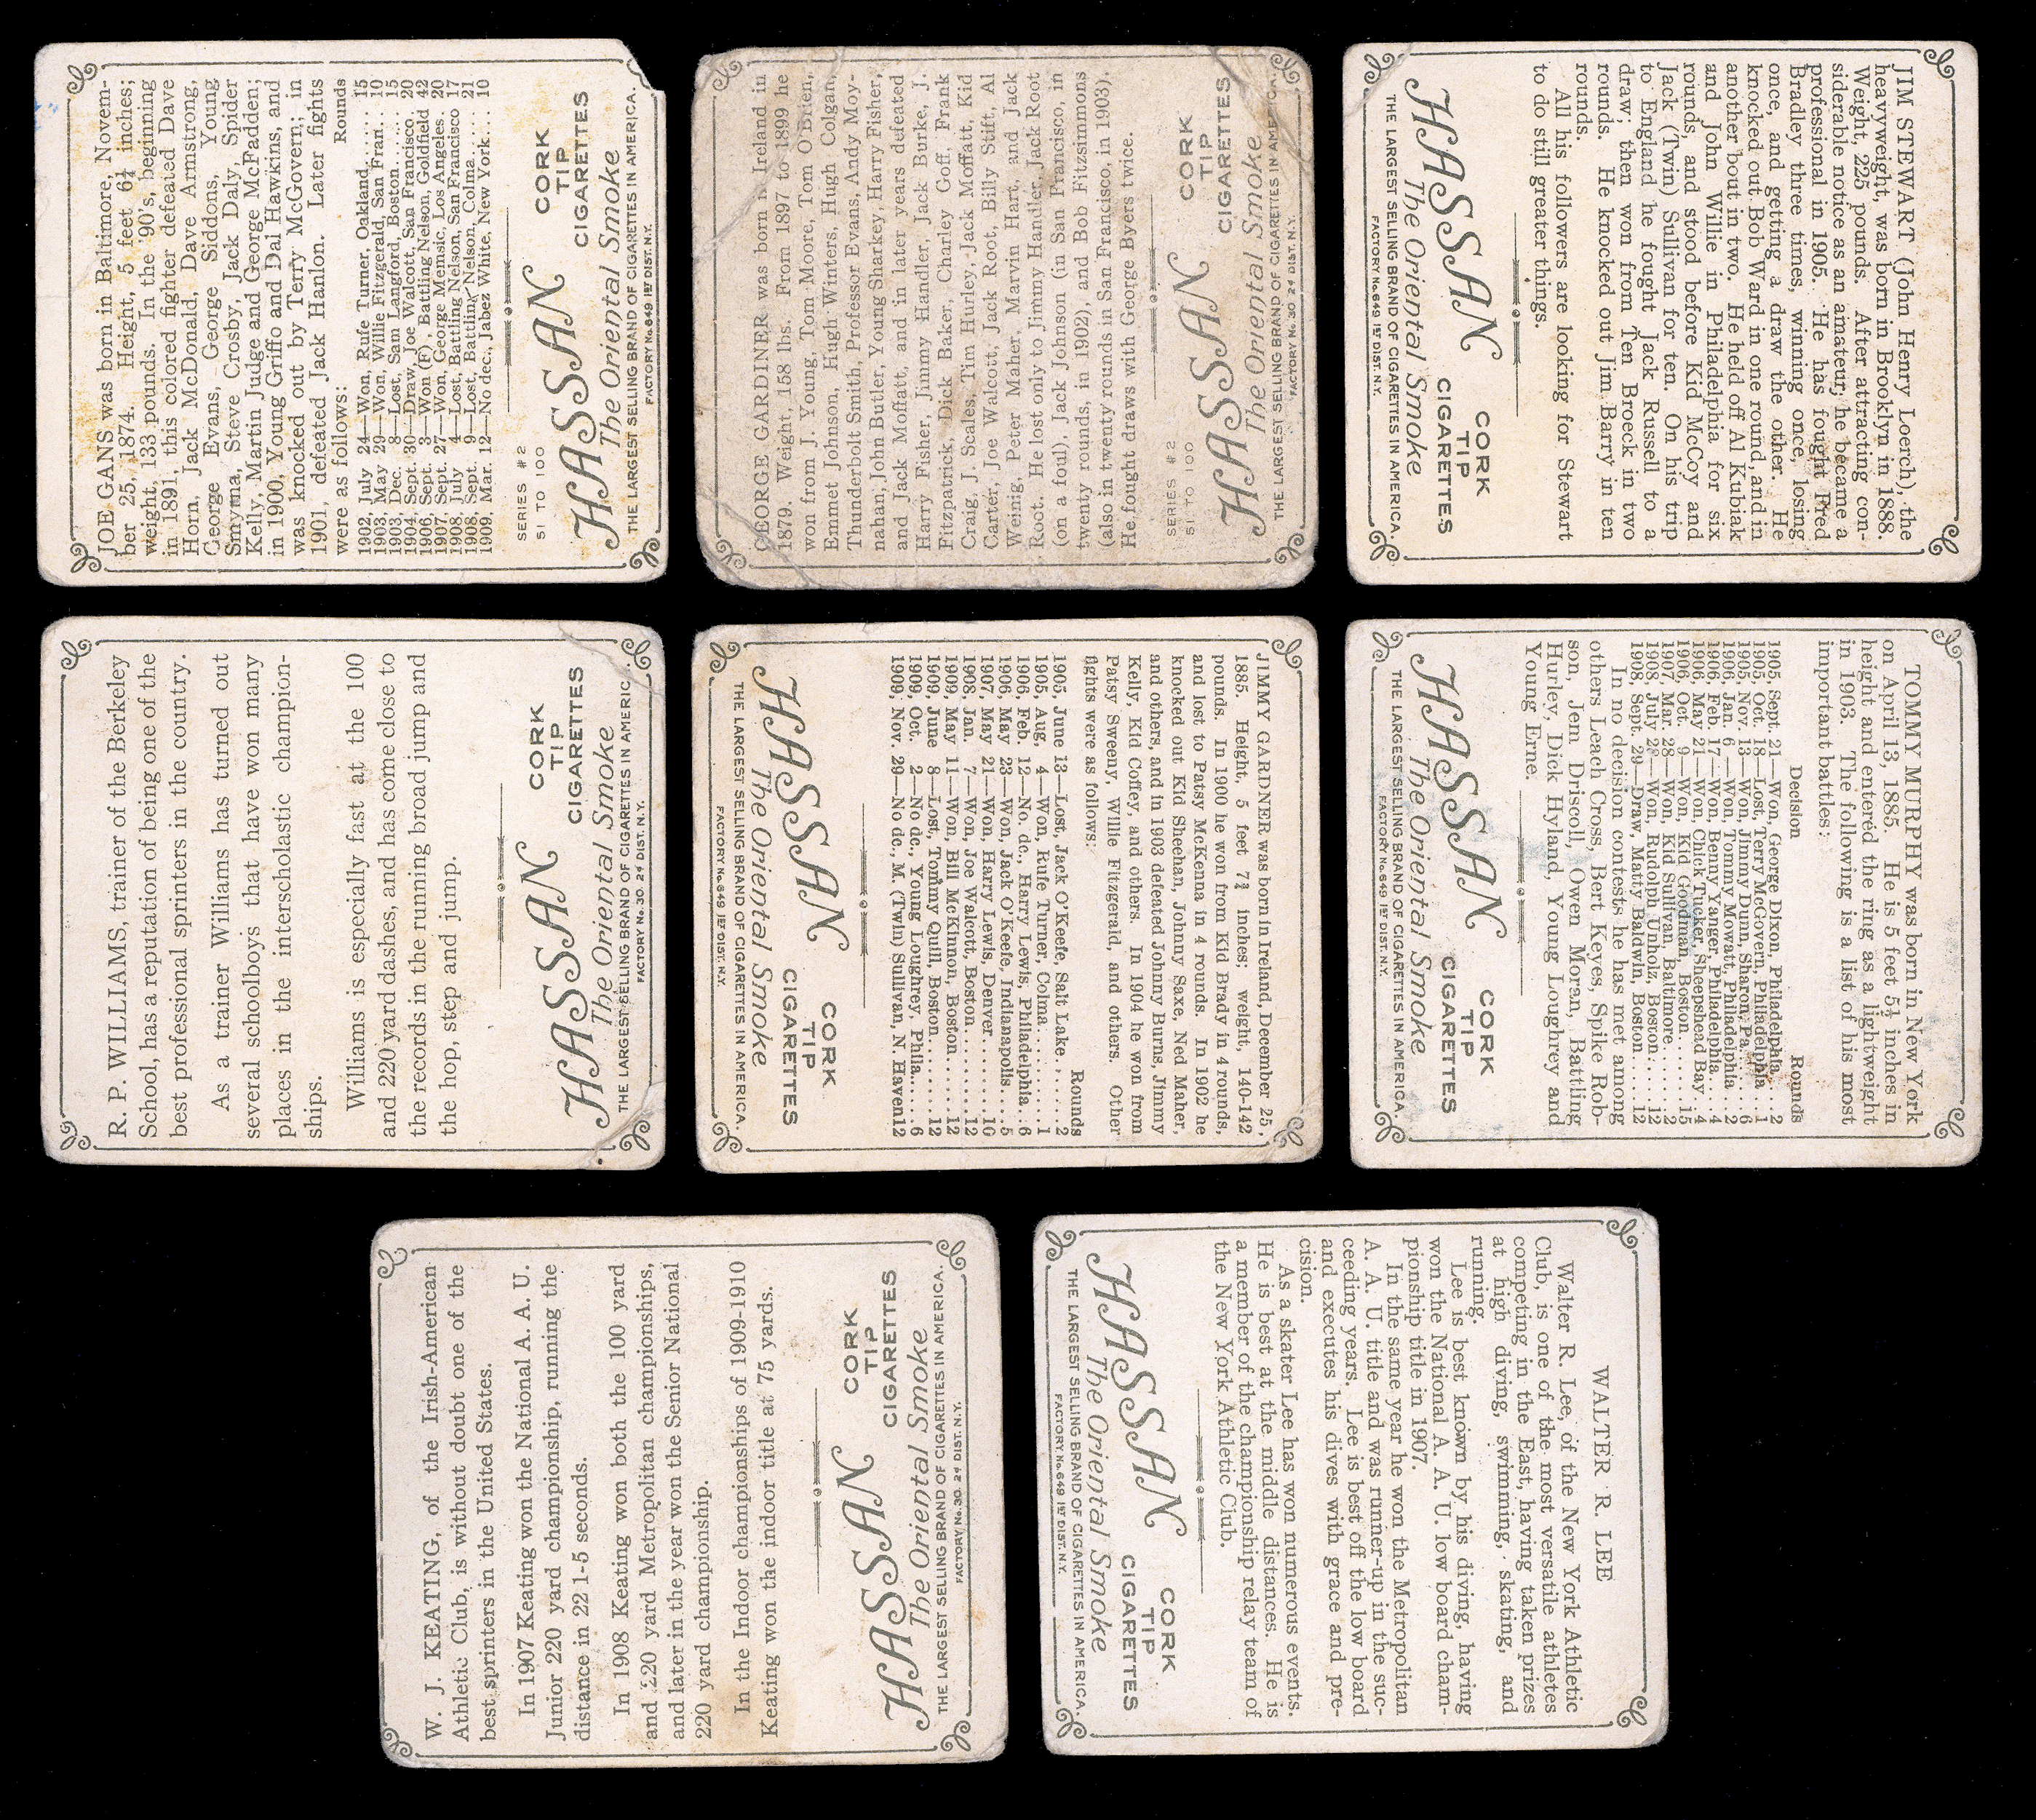 JOE GANS was born in Baltimore, Novem-
ber 25, 1874. Height, 5 feet 6¼ inches;
weight, 133 pounds. In the 90's, beginning
in 1891, this colored fighter defeated Dave
Horn, Jack McDonald, Dave Armstrong,
George Evans, George Siddons, Young
Smyrna, Steve Crosby, Jack Daly, Spider
Kelly, Martin Judge and George McFadden;
in 1900, Young Griffo and Dal Hawkins, and
was knocked out by Terry McGovern; in
1901, defeated Jack Hanlon. Later fights
were as follows: Rounds
1902, July 24—Won, Rufe Turner, Oakland...... 15
1903, May 29—Won, Willie Fitzgerald, San Fran.. 10
1903, Dec. 8—Lost, Sam Langford, Boston...... 15
1904, Sept. 30—Draw, Joe Walcott, San Francisco. 20
1906, Sept. 3—Won (F), Battling Nelson, Goldfield 42
1907, Sept. 27—Won, George Memsic, Los Angeles. 20
1908, July 4—Lost, Battling Nelson, San Francisco 17
1908, Sept. 9—Lost, Battling Nelson, Colma...... 21
1909, Mar. 12—No dec., Jabez White, New York.... 10
SERIES #2
51 TO 100
HASSAN CORK TIP CIGARETTES
The Oriental Smoke
THE LARGEST SELLING BRAND OF CIGARETTES IN AMERICA.
FACTORY No. 649 1ST DIST. N.Y.
GEORGE GARDINER was born in Ireland in
1879. Weight, 158 lbs. From 1897 to 1899 he
won from J. Young, Tom Moore, Tom O'Brien,
Emmet Johnson, Hugh Winters, Hugh Colgan,
Thunderbolt Smith, Professor Evans, Andy Moy-
nahan, John Butler, Young Sharkey, Harry Fisher,
and Jack Moffatt, and in later years defeated
Harry Fisher, Jimmy Handler, Jack Burke, J.
Fitzpatrick, Dick Baker, Charley Goff, Frank
Craig, J. Scales, Tim Hurley, Jack Moffatt, Kid
Carter, Joe Walcott, Jack Root, Billy Stift, Al
Weinig, Peter Maher, Marvin Hart, and Jack
Root. He lost only to Jimmy Handler, Jack Root
(on a foul), Jack Johnson (in San Francisco, in
twenty rounds, in 1902), and Bob Fitzsimmons
(also in twenty rounds in San Francisco, in 1903).
He fought draws with George Byers twice.
SERIES #2
51 TO 100
HASSAN CORK TIP CIGARETTES
The Oriental Smoke
THE LARGEST SELLING BRAND OF CIGARETTES IN AMERICA.
FACTORY No. 30. 2d DIST. N.Y.
JIM STEWART (John Henry Loerch), the
heavyweight, was born in Brooklyn in 1888.
Weight, 225 pounds. After attracting con-
siderable notice as an amateur, he became a
professional in 1905. He has fought Fred
Bradley three times, winning once, losing
once, and getting a draw the other. He
knocked out Bob Ward in one round, and in
another bout in two. He held off Al Kubiak
and John Willie in Philadelphia for six
rounds, and stood before Kid McCoy and
Jack (Twin) Sullivan for ten. On his trip
to England he fought Jack Russell to a
draw; then won from Ten Broeck in two
rounds. He knocked out Jim Barry in ten
rounds.
All his followers are looking for Stewart
to do still greater things.
HASSAN CORK TIP CIGARETTES
The Oriental Smoke
THE LARGEST SELLING BRAND OF CIGARETTES IN AMERICA.
FACTORY No. 649 1ST DIST. N.Y.
R. P. WILLIAMS, trainer of the Berkeley
School, has a reputation of being one of the
best professional sprinters in the country.
As a trainer Williams has turned out
several schoolboys that have won many
places in the interscholastic champion-
ships.
Williams is especially fast at the 100
and 220 yard dashes, and has come close to
the records in the running broad jump and
the hop, step and jump.
HASSAN CORK TIP CIGARETTES
The Oriental Smoke
THE LARGEST SELLING BRAND OF CIGARETTES IN AMERIC
FACTORY No. 30. 2d DIST. N.Y.
JIMMY GARDNER was born in Ireland, December 25,
1885. Height, 5 feet 7¾ inches; weight, 140-142
pounds. In 1900 he won from Kid Brady in 4 rounds,
and lost to Patsy McKenna in 4 rounds. In 1902 he
knocked out Kid Sheehan, Johnny Saxe, Ned Maher,
and others, and in 1903 defeated Johnny Burns, Jimmy
Kelly, Kid Coffey, and others. In 1904 he won from
Patsy Sweeny, Willie Fitzgerald, and others. Other
fights were as follows: Rounds
1905, June 13—Lost, Jack O'Keefe, Salt Lake....... 2
1905, Aug, 4—Won, Rufe Turner, Colma......... 1
1906, Feb. 12—No. dc., Harry Lewis, Philadelphia.. 6
1906, May 23—Won, Jack O'Keefe, Indianapolis... 5
1907, May 21—Won, Harry Lewis, Denver........ 10
1908, Jan. 7—Won, Joe Walcott, Boston......... 12
1909, May 11—Won, Bill McKinnon, Boston...... 12
1909, June 8—Lost, Tommy Quill, Boston....... 12
1909, Oct. 2—No dc., Young Loughrey, Phila..... 6
1909, Nov. 29—No dc., M. (Twin) Sulivan, N. Haven 12
HASSAN CORK TIP CIGARETTES
The Oriental Smoke
THE LARGEST SELLING BRAND OF CIGARETTES IN AMERICA.
FACTORY No. 649 1ST DIST. N.Y.
TOMMY MURPHY was born in New York
on April 13, 1885. He is 5 feet 5½ inches in
height and entered the ring as a lightweight
in 1903. The following is a list of his most
important battles:
Decision Rounds
1905, Sept. 21—Won, George Dixon, Philadelphia... 2
1905, Oct. 18—Lost, Terry McGovern, Philadelphia 1
1905, Nov. 13—Won, Jimmy Dunn, Sharon, Pa..... 6
1906, Jan. 6—Won, Tommy Mowatt, Philadelphia 2
1906, Feb. 17—Won, Benny Yanger, Philadelphia... 4
1906, May 21—Won, Chick Tucker, Sheepshead Bay. 4
1906, Oct. 9—Won, Kid Goodman, Boston...... 15
1907, Mar. 28—Won, Kid Sullivan, Baltimore..... 2
1908, July 28—Won, Rudolph Unholz, Boston..... 12
1908, Sept. 29—Draw, Matty Baldwin, Boston.... 12
In no decision contests he has met among
others Leach Cross, Bert Keyes, Spike Rob-
son, Jem Driscoll, Owen Moran, Battling
Hurley, Dick Hyland, Young Loughrey and
Young Erne.
HASSAN CORK TIP CIGARETTES
The Oriental Smoke
THE LARGEST SELLING BRAND OF CIGARETTES IN AMERICA.
FACTORY No. 649 1ST DIST. N.Y.
W. J. KEATING, of the Irish-American
Athletic Club, is without doubt one of the
best sprinters in the United States.
In 1907 Keating won the National A. A. U.
Junior 220 yard championship, running the
distance in 22 1-5 seconds.
In 1908 Keating won both the 100 yard
and 220 yard Metropolitan championships,
and later in the year won the Senior National
220 yard championship.
In the Indoor championships of 1909-1910
Keating won the indoor title at 75 yards.
HASSAN CORK TIP CIGARETTES
The Oriental Smoke
THE LARGEST SELLING BRAND OF CIGARETTES IN AMERICA.
FACTORY No. 30. 2d DIST. N.Y.
WALTER R. LEE
Walter R. Lee, of the New York Athletic
Club, is one of the most versatile athletes
competing in the East, having taken prizes
at high diving, swimming, skating, and
running.
Lee is best known by his diving, having
won the National A. A. U. low board cham-
pionship title in 1907.
In the same year he won the Metropolitan
A. A. U. title and was runner-up in the suc-
ceeding years. Lee is best off the low board
and executes his dives with grace and pre-
cision.
As a skater Lee has won numerous events.
He is best at the middle distances. He is
a member of the championship relay team of
the New York Athletic Club.
HASSAN CORK TIP CIGARETTES
The Oriental Smoke
THE LARGEST SELLING BRAND OF CIGARETTES IN AMERICA.
FACTORY No. 649 1ST DIST. N.Y.